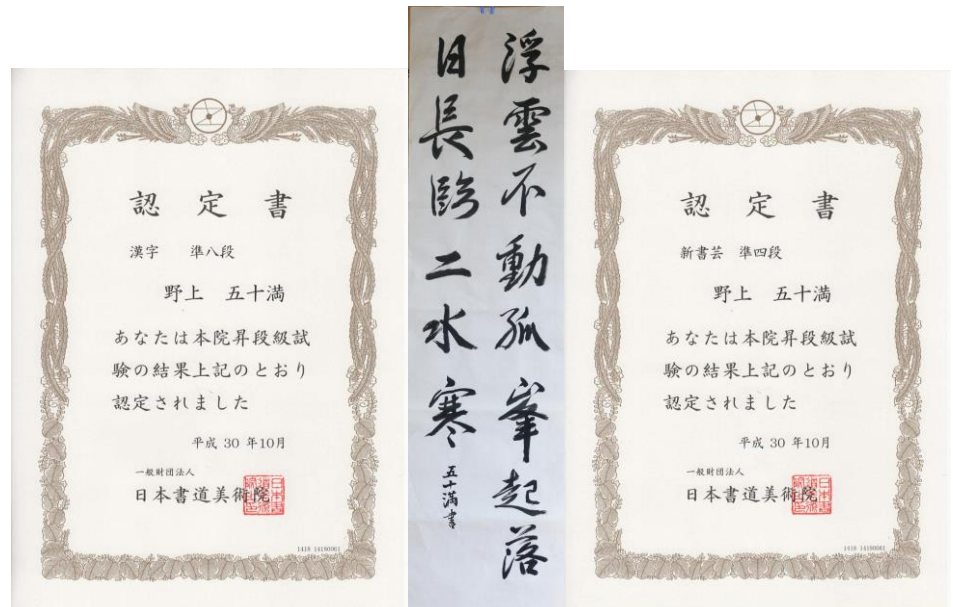 認定書
漢字 準八段
野上 五十満
あなたは本院昇段級試
験の結果上記のとおり
認定されました
平成 30 年10月
一般財団法人
日本書道美術院
1418 14180061
浮雲不動孤峯起落
日長臨二水寒
五十満書
認定書
新書芸 準四段
野上 五十満
あなたは本院昇段級試
験の結果上記のとおり
認定されました
平成 30 年10月
一般財団法人
日本書道美術院
1418 14180061